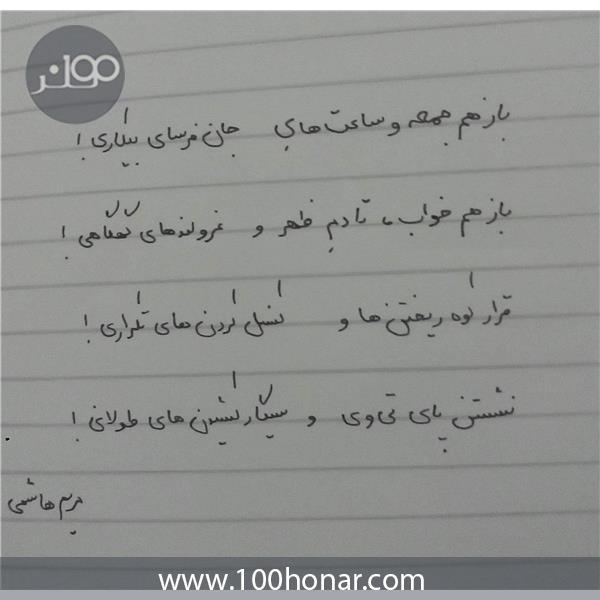 صدهنر
باز هم جمعه و ساعت‌های جان فرسای بیکاری!
باز هم خواب، تا دمِ ظهر و غرولندهای گهگاهی!
قرار کوه ریختن‌ها و کنسل کردن‌های تکراری!
نشستن پای تی‌وی و سیگار کشیدن‌های طولانی!
مریم هاشمی
www.100honar.com